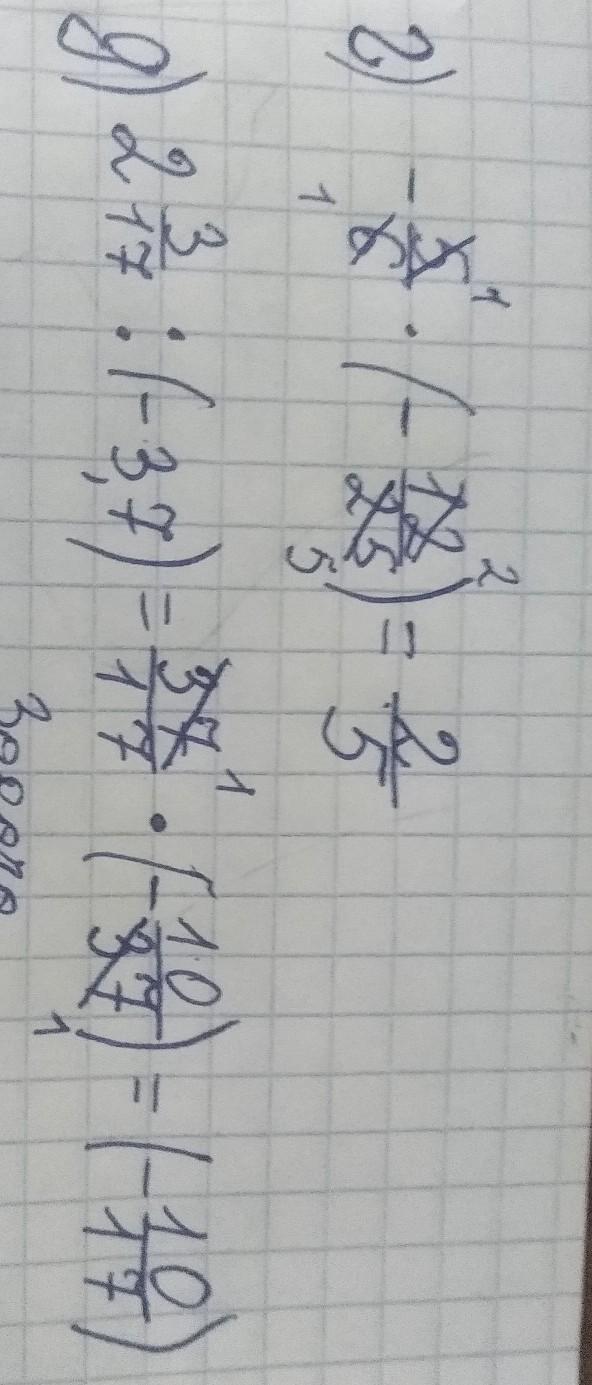 г) - 5/6 · (- 12/25) = 2/5
1 1 2 5
д) 2 3/17 : (- 3,7) = 37/17 · (- 10/37) = (- 10/17)
1 1